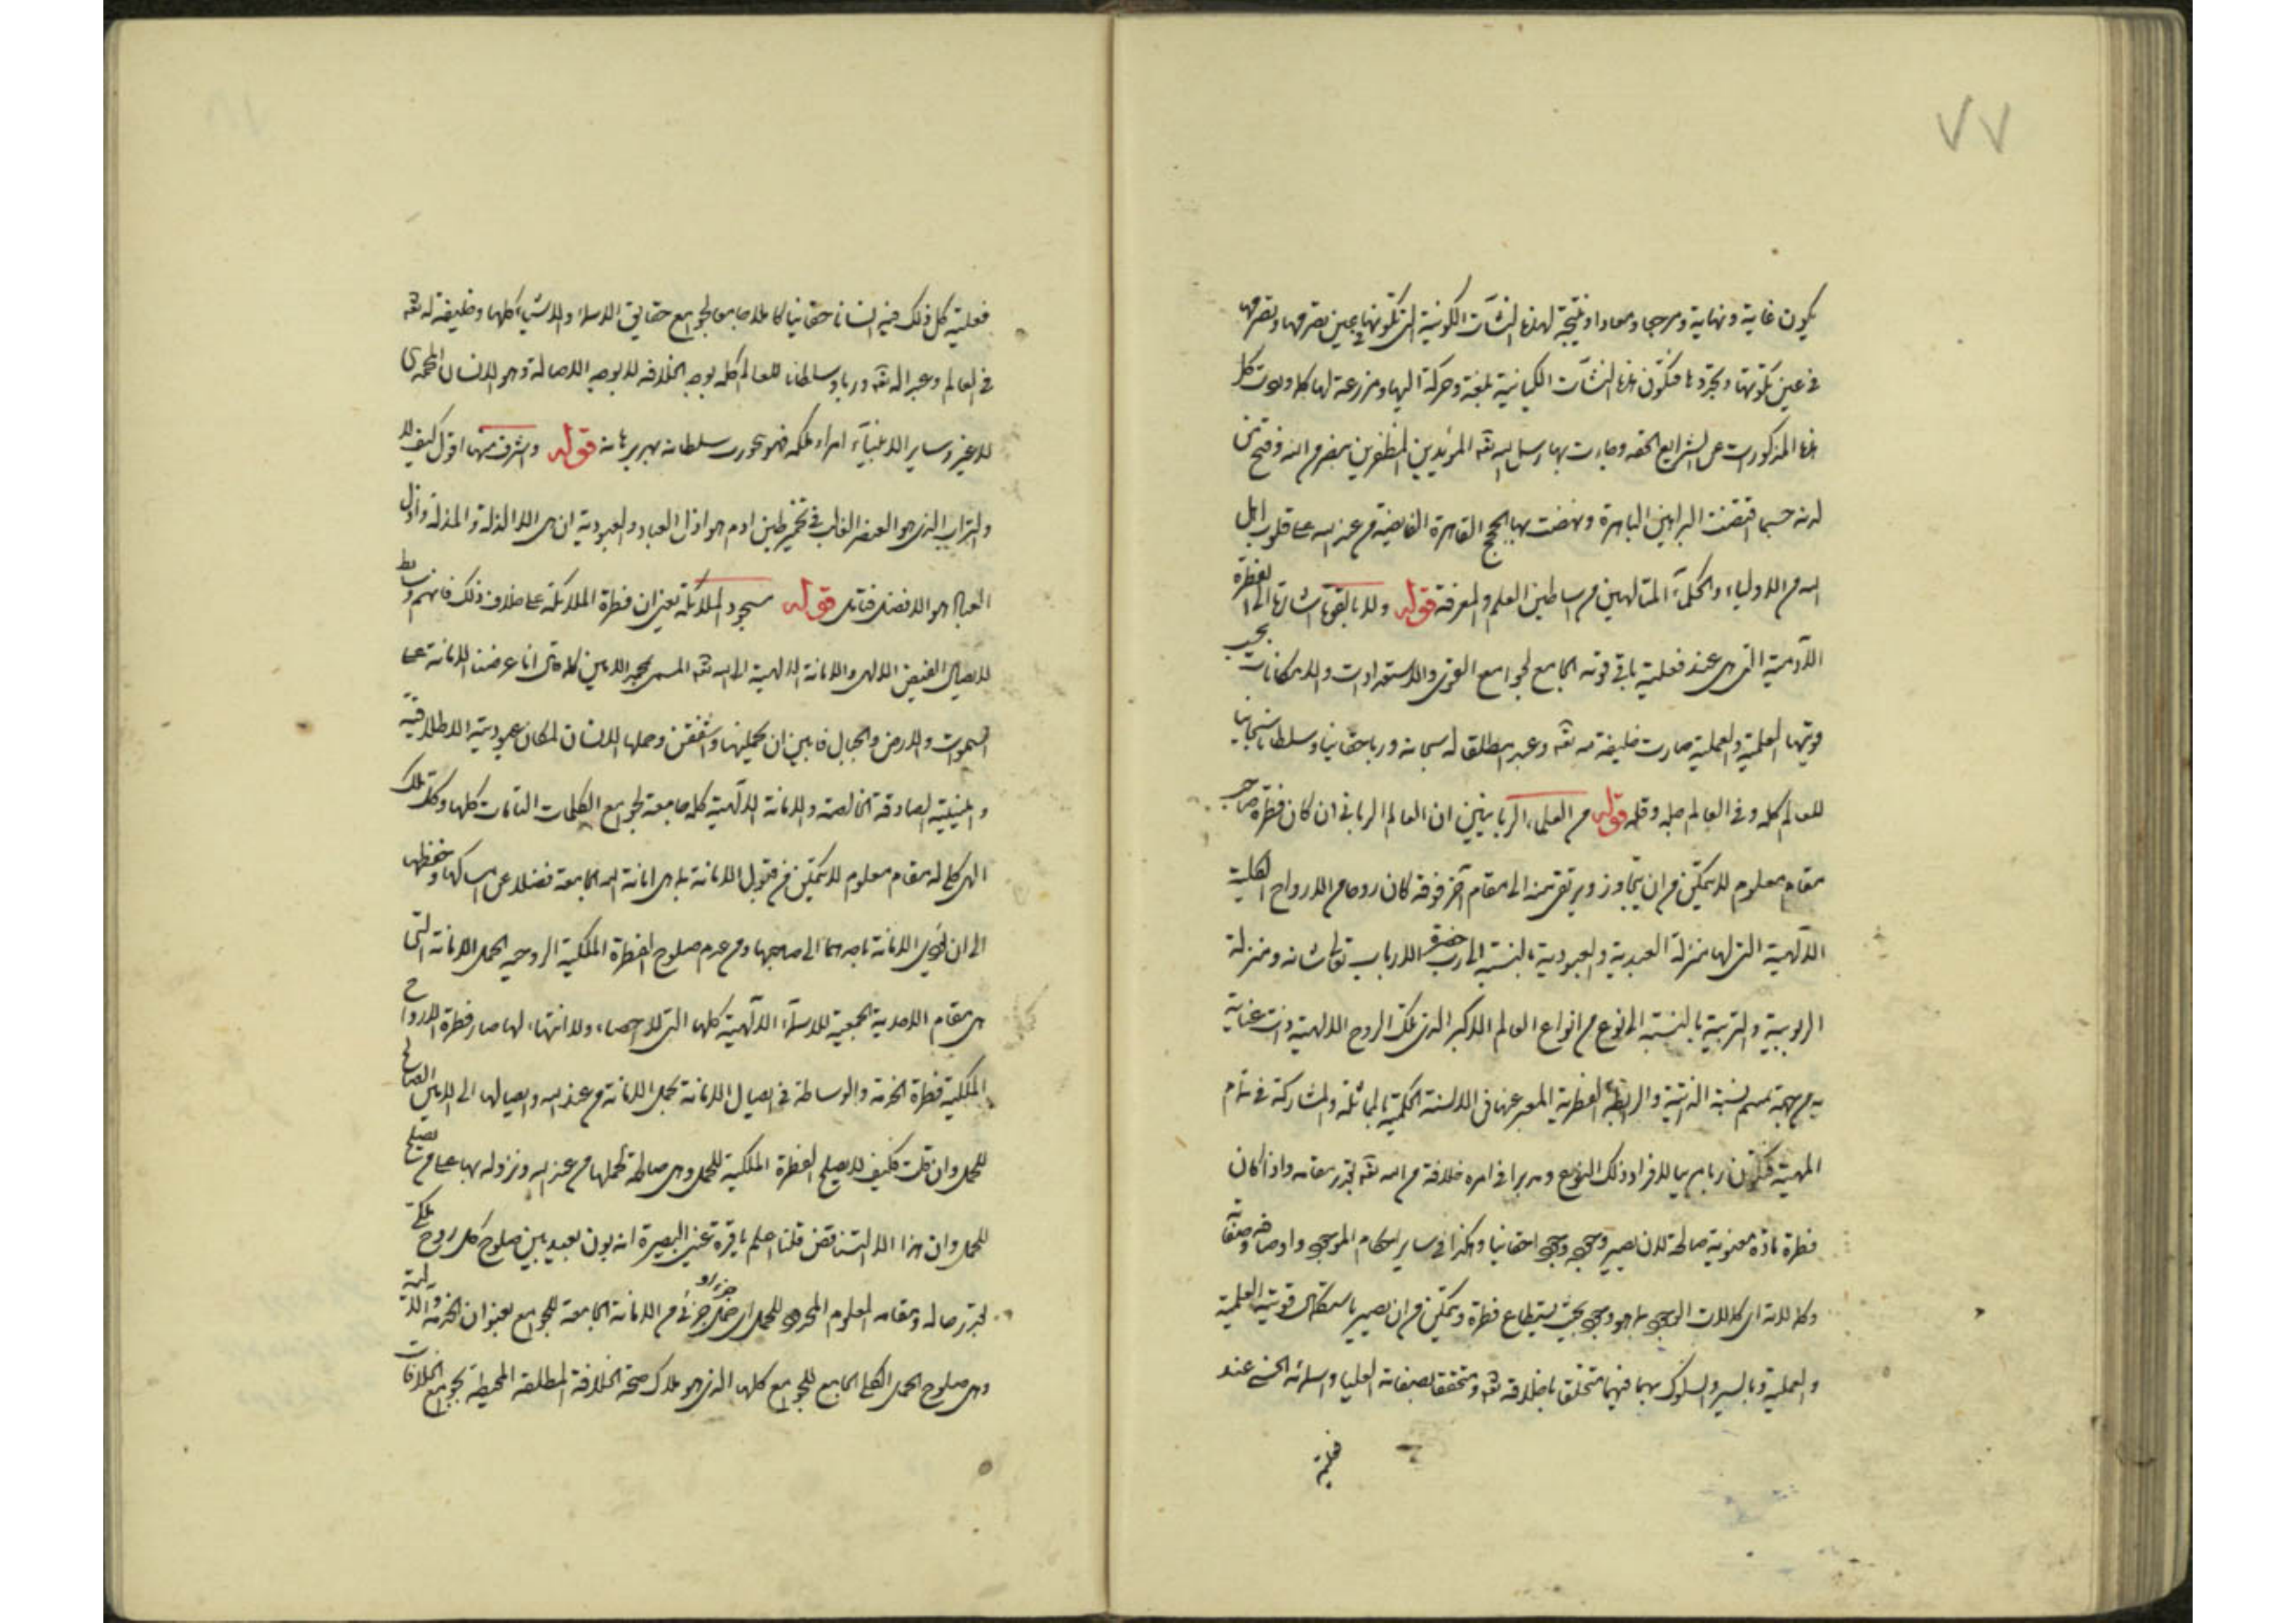 ٧٧
يكون غاية ونهاية ومرجعا ومعادا ونتيجة لهذه النشآت الكونية التى تكونها فى عين تصرفها وتصرفها
فى عين تكونها وتجردها فتكون هذه النشآت الكيانية بلغة وحركة اليها ومزرعة لها كله ولوت كل
هذه المذكورات من الشرايع الحقه وجاءت بها رسل الله تعه المؤيدين المظفرين بنصر من الله وفتح
لدنه حسبما اقتضت البراهين الباهرة ونهضت بها الحجج القاهرة الفايضة من عند الله على قلوب اهل
الله من الاولياء والحكماء المتالهين من اساطين العلم والمعرفة قوله ولا بالقوة اشارة الى الفطرة
الآدمية التى هى عند فعلية باقى قوته الجامع لجوامع القوى والاستعدادات والامكانات بحسب
قوتيها العلمية والعملية صارت خليفة منه تعه وعبدا مطلقا له سبحانه وربا حقانيا وسلطانا سبحانيا
للعالم كله وفى العالم جله وقله قوله من العلماء الربانيين ان العالم الربانى ان كان فطرة صاحب
مقام معلوم لا يتمكن من ان يتجاوز ويرتقى منه الى مقام آخر فوقه كان روحا من الارواح الكلية
الآلهية التى لها منزلة العبدية والعبودية بالنسبة الى حضرة رب الارباب تعالى شانه ومنزلة
الربوبية والتربية بالنسبة الى نوع من انواع العالم الاكبر الذى تلك الروح الالهية ذات عناية
به من جهة تمم نسبة الذاتية والرابطة الفطرية المعبر عنها فى الالسنة الحكمية بالمماثلة والمشاركة فى تمام
المهية فتكون ربا مربيا لافراد ذلك النوع ومدبرا فى امره خلافة من الله تعه بقدر مقامه واذا كان
فطرة مادة معنوية صالحة لان يصير وجوه وجودا حقانيا وهكذا فى ساير احكام الموجود واوصافه وصفاته
وكمالاته اى كمالات الوجود بما هو وجود بحيث يستطاع فطرة ويتمكن من ان يصير باستكمال قوتيه العلمية
والعملية وبالسير والسلوك بهما فيهما متخلقا باخلاقه تعه ومتحققا بصفاته العليا واسمائه الحسنى عند
فعلية
فعلية كل ذلك فيه انسانا حقانيا كاملا جامعا لجوامع حقايق الاسماء والاشياء كلها وخليفة له تعه
فى العالم وعبد الله تعه وربا وسلطانا للعالم كله بوجه الخلافة لا بوجه الاصالة وهو الانسان المحمدى
لا غير وساير الانبياء امراء ملكه فهو محور سلطانه بهم برهانه قوله وشرف منها اقول كيف لا
والتراب الذى هو العنصر الغالب فى تخمير طين ادم هو اذل العباد والعبودية ان هى الا الذلة والمذلة واذل
العباد هو الافضل فتامل قوله سجود الملائكة يعنى ان فطرة الملائكة على خلاف ذلك فانهم وسايط
لايصال الفيض الالهى والامانة الالهية الى الله تعه المسمى بمحمد الامين كما قال انا عرضنا الامانة على
السموات والارض والجبال فابين ان يحملنها واشفقن منها وحملها الانسان لمكان عبوديته الاطلاقية
والمينية الصادقة الخالصة والامانة الالهية كلمة جامعة لجوامع الكلمات التامات كلها وكل ملك
الهى كلى له مقام معلوم لا يتمكن من قبول الامانة بما هى امانة الله الجامعة فضلا عن امساكها وحفظها
الى ان يؤدى الامانة باجمعها الى صاحبها ومن عدم صلوح الفطرة الملكية الروحيه لحمل الامانة التى
هى مقام الاحدية الجمعية للاسماء الآلهية كلها التى لا احصاء ولا انتهاء لها صار فطرة الارواح
الملكية فطرة الخدمة والوساطة فى ايصال الامانة تحمل الامانة من عند الله وايصالها الى الامين الصالح
للحمل وان قلت فكيف لا يصلح الفطرة الملكية للحمل وهى صالحة لحملها من عند الله ونزوله بها على من يصلح
للحمل وان هذا الا التناقض قلنا اعلم يا قرة عينى البصيرة انه بون بعيد بين صلوح كل روح ملكى
بقدر حاله ومقامه المعلوم المحدود للحمل اى حمل جزء او جزئى من الامانة الجامعة للجوامع بعنوان الخدمة والآلية
وهى صلوح الحمل الكلى الجامع للجوامع كلها الذى هو ملاك صحة الخلافة المطلقة المحيطة بجوامع الخلافات